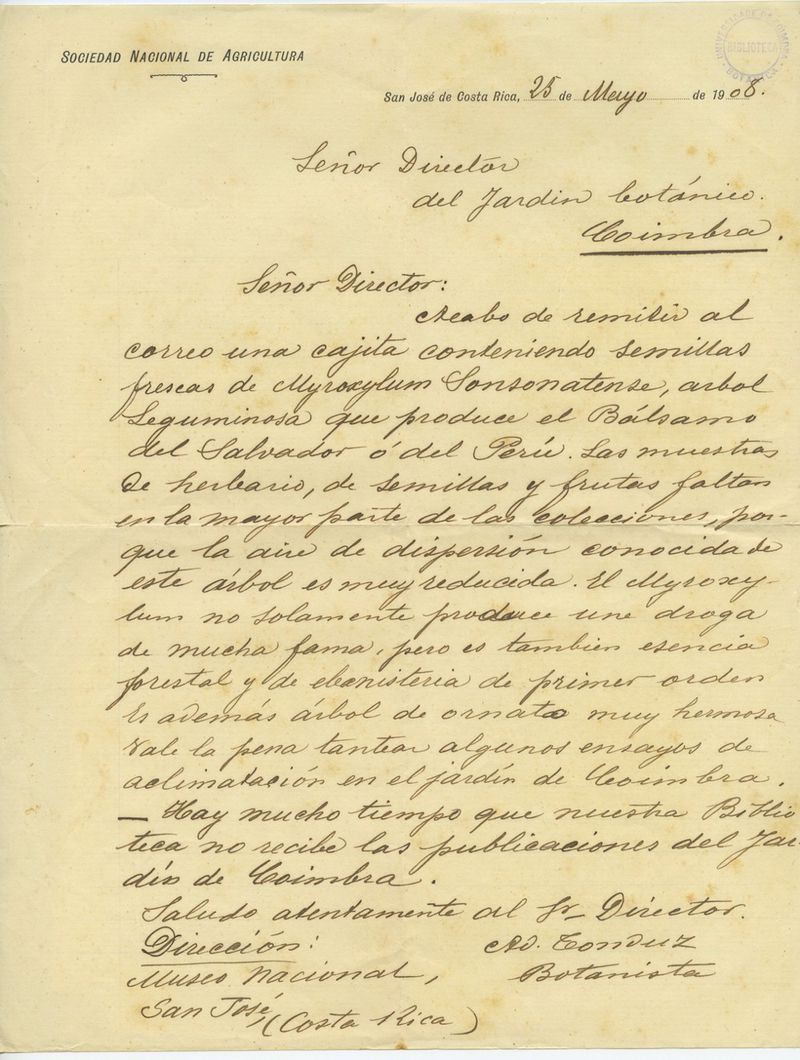 SOCIEDAD NACIONAL DE AGRICULTURA
UNIVERSIDADE DE COIMBRA
BIBLIOTECA
BOTANICA
San José de Costa Rica, 25 de Mayo de 1908.
Señor Director
del Jardin botánico.
Coimbra.
Señor Director:
Acabo de remitir al
correo una cajita conteniendo semillas
frescas de Myroxylum Sonsonatense, arbol
Leguminosa que produce el Bálsamo
del Salvador ó del Perú. Las muestras
de herbario, de semillas y frutas faltan
en la mayor parte de las colecciones, por-
que la aire de dispersión conocida de
este árbol es muy reducida. El Myroxy-
lum no solamente produce une droga
de mucha fama, pero es tambien esencia
forestal y de ebanisteria de primer orden
Es además árbol de ornato muy hermosa
Vale la pena tantear algunos ensayos de
aclimatación en el jardín de Coimbra.
— Hay mucho tiempo que nuestra Biblio
teca no recibe las publicaciones del Jar-
dín de Coimbra.
Saludo atentamente al Sr Director.
Dirección: Ad. Tonduz
Museo Nacional, Botanista
San José, (Costa Rica)